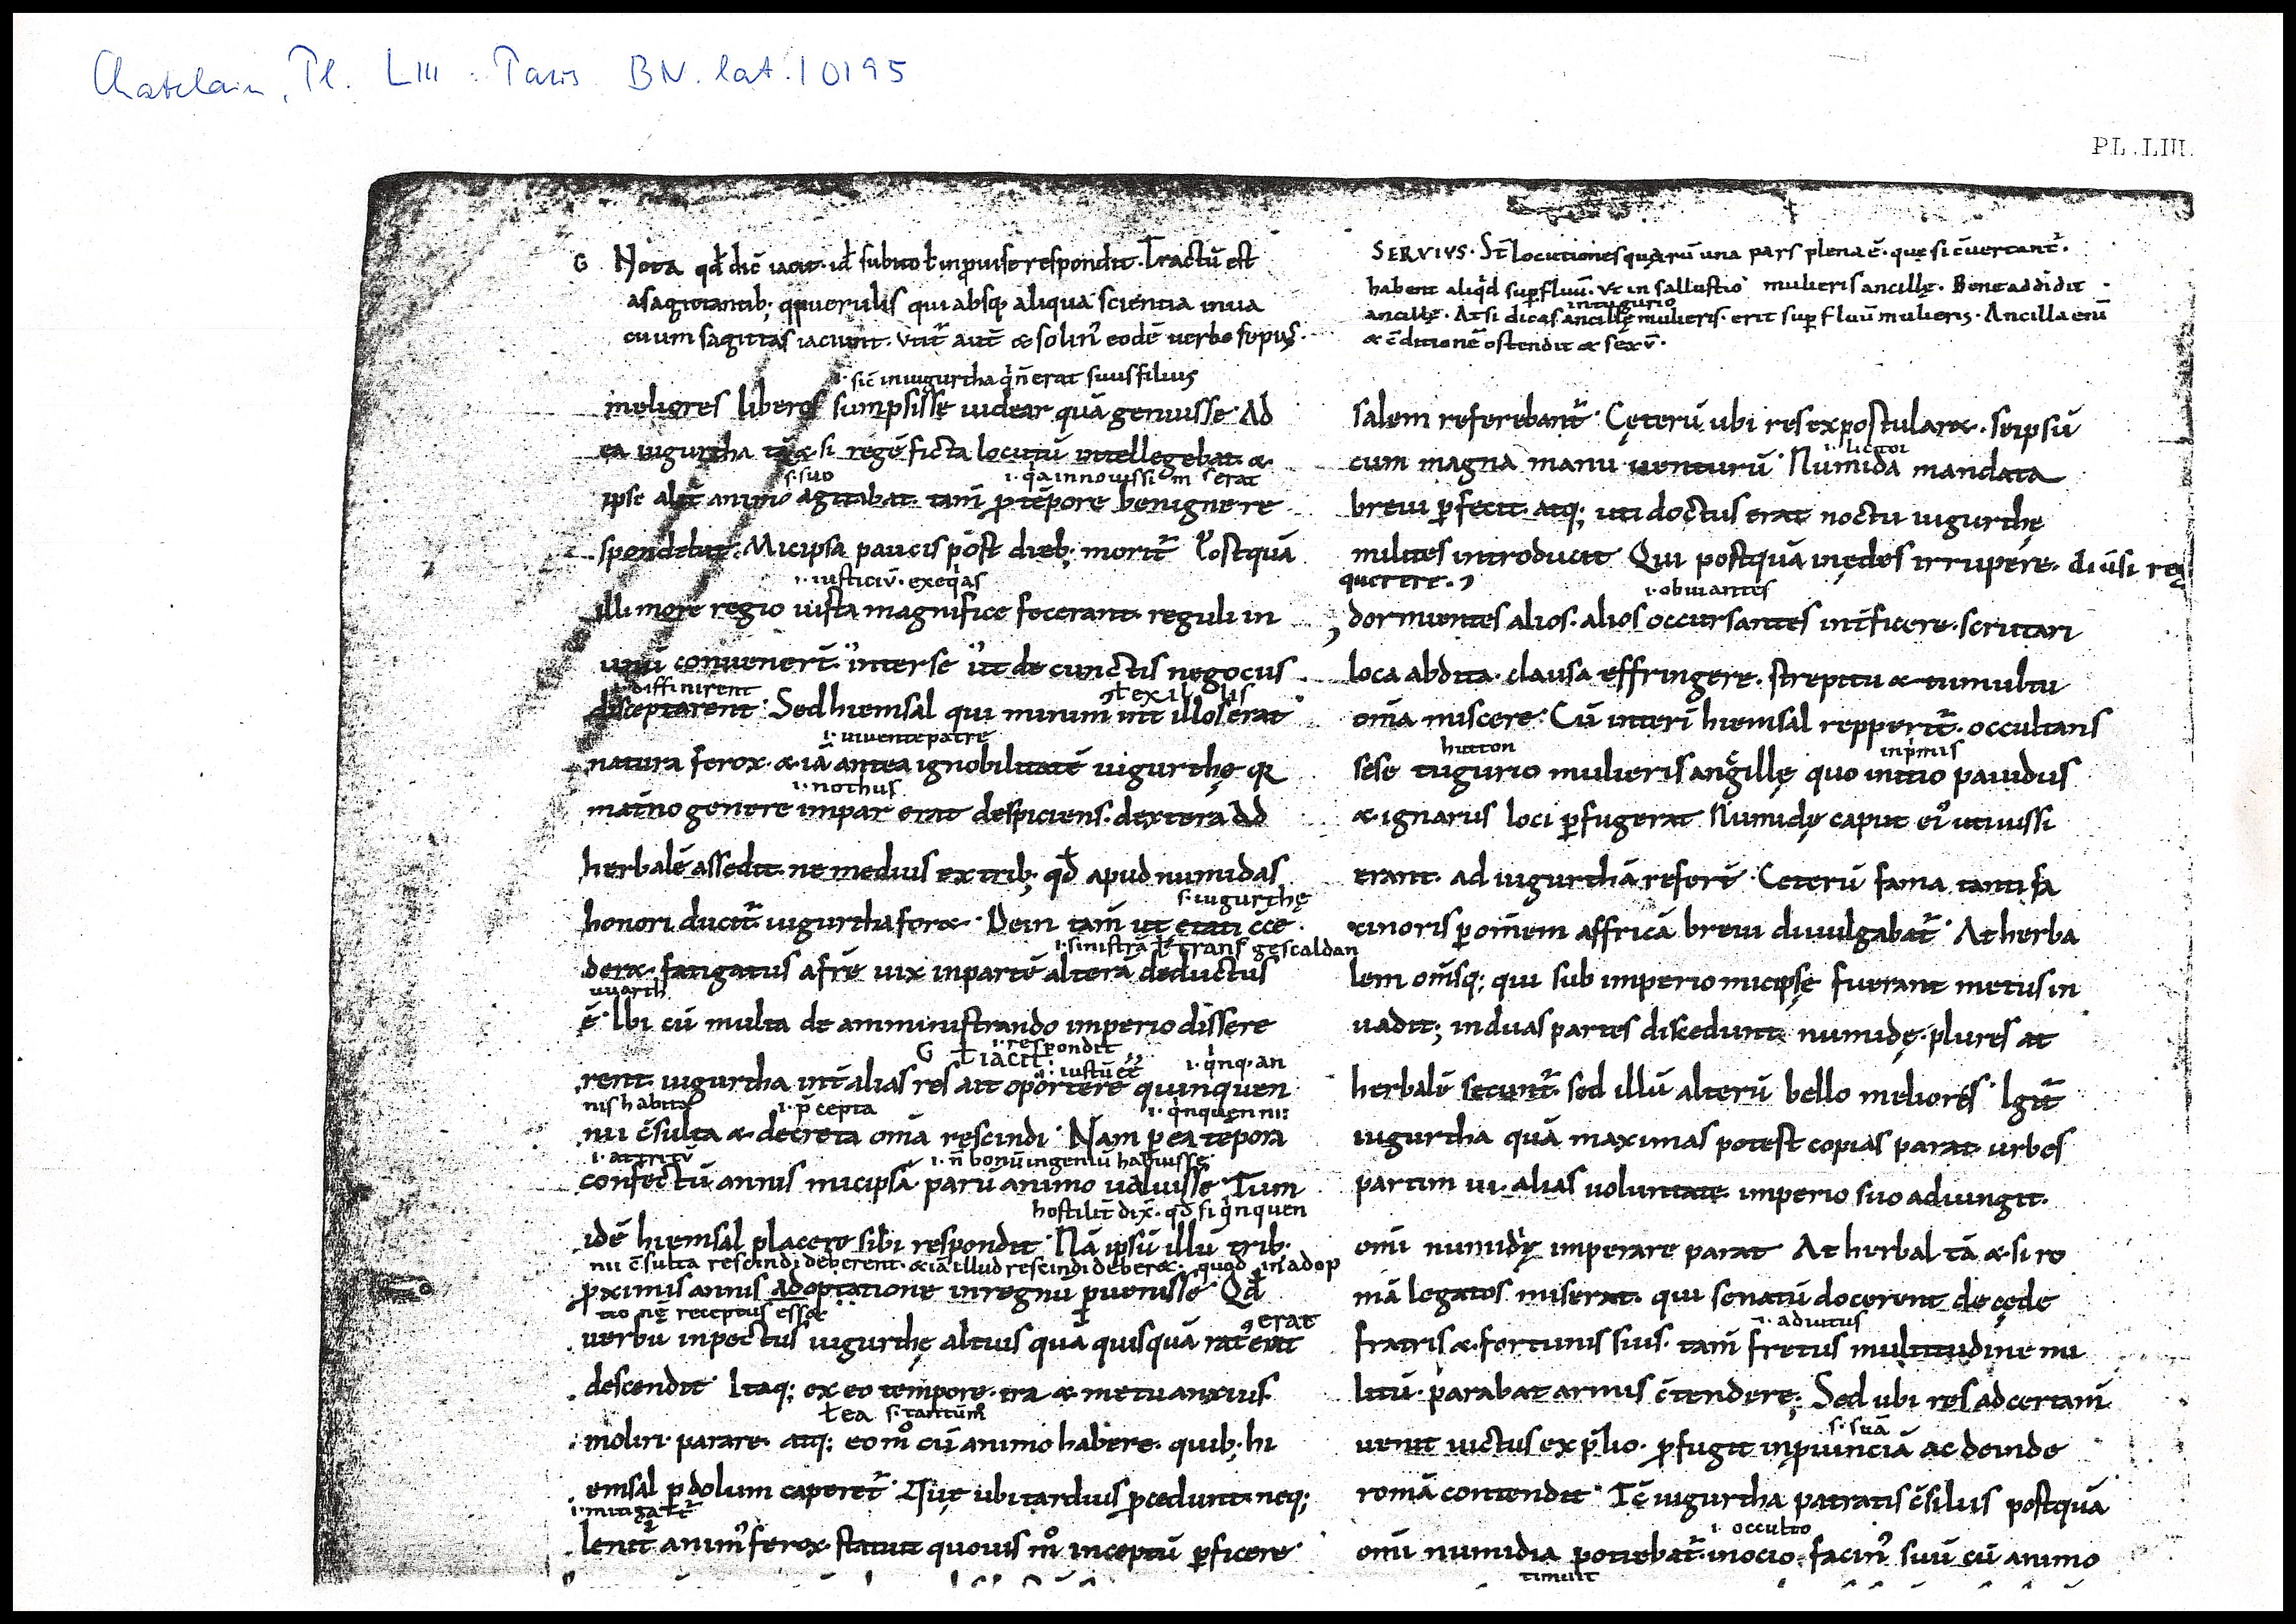 Chatelain, Pl. LIII. Paris BN. lat. 10195
PL. LIII.
G Nota qđ dic̄ iacit. iđ subito ł inprouise respondit. Tractū est
a sagittantib; puerulis qui absq; aliqua scientia inua
cuum sagittas iaciunt. Vtit᷑ aut̄ & solin᾽ eodē uerbo sepius.
i. sic̄ in iugurtha q n̄ erat suus filius
meliores liberos sumpsisse uidear quā genuisse. Ad
ea iugurtha tā & si regē ficta locutū intellegebat &
s. suo i. q̇a in nouissim erat
ipse alit̄ animo agitabat. tam̄ p tēpore benigne re
spondetur. Micipsa paucis post dieb; morit᷑ Postquā
i. iusticiū. exeq̇as
illi more regio iusta magnifice fecerant. reguli in
unū convenert̄. inter se ut de cunctis negociis
ł diffinirent ł ex illis
disceptarent. Sed hiemsal qui minim᾽ int̄ illos erat
i. uiuente patre
natura ferox. & iā antea ignobilitatē iugurthę q̇
i. nothus
mat̄no genere impar erat despiciens. dextera ad
herbalē assedit. ne medius ex trib; qđ apud numidas
s. iugurthę
honori ducit᷑ iugurtha for&. Dein tam̄ ut etati c̄ce
i. sinistrā ł trans gescaldan
der&. fatigatus a fr̄e uix in partē alterā deductus
uuarth
ē. Ibi cū multa de amministrando imperio dissere
i. respondit
G ł iacit i. iustū eē i. q̇nq. an
rent. iugurtha int̄ alias res ait oportere quinquen
nis habita i. p̄cepta i. q̇nquennii
nii c̄sulta & decreta om̄a rescindi. Nam p ea tēpora
i. attritū i. n̄ bonū ingeniū habuisse
confectū annis micipsā parū animo ualuisse. Tum
hostilit̄ dix. qđ si q̇nquen
idē hiemsal placere sibi respondit. Nā ipsū illū trib.
nii c̄sulta rescindi deberent. & iā illud rescindi deber&. quod in adop
pximis annis adoptatione in regnū puenisse. Qđ
tionē receptus ess&
erat
uerbū in pectus iugurthę altius quā quisquā rat᾽ erat
descendit. Itaq; ex eo tempore. ira & metu anxius
ł ea s. tantum᾽
moliri. parare. atq; eo m̊ cū animo habere. quib. hi
emsal p dolum caperet᷑. Que ubi tardius pcedunt. neq;
i. mitigat᷑
lenit᷑ anim᾽ ferox. statuit quouis m̊ inceptū pficere
SERVIVS. St̄ locutiones quarū una pars plena ē. que si c̄uertant᷑.
habent aliq̇d supfluū. Vt in sallustio mulieris ancillę. Bene addidit
in tugurio
ancillę. At si dicas ancillę mulieris. erit supfluū mulieris. Ancilla enī
& c̄ditionē ostendit & sexū.
salem referebant᷑. Cęterū ubi res expostular&. seipsū
i. lictor
cum magna manu uenturū. Numida mandata
breui pfecit. atq; uti doctus erat noctu iugurthę
milites introducit. Qui postquā in ędes irrupere. diūsi regē
querere. i. obuiantes
dormientes alios. alios occursantes int̄ficere. scrutari
loca abdita. clausa effringere. strepitu & tumultu
om̄a miscere. Cū interī hiemsal repperit᷑. occultans
hutton in ṗmis
sese tugurio mulieris ancillę quo initio pauidus
& ignarus loci pfugerat. Numidę caput ei᾽ uti iussi
erant. ad iugurthā refert̄. Ceterū fama tanti fa
cinoris p om̄em affricā breui diuulgabat᷑. At herba
lem om̄sq; qui sub imperio micipsę fuerant metus in
uadit; in duas partes discedunt numidę. plures at
herbalē secunt᷑. sed illū alterū bello meliores. Igit᷑
iugurtha quā maximas potest copias parat. urbes
partim ui. alias uoluntate. imperio suo adiungit.
om̄i numidię imperare parat. At herbal tā & si ro
mā legatos miserat. qui senatū docerent de cęde
i. adiutus
fratris & fortunis suis. tam̄ fretus multitudine mi
litū. parabat armis c̄tendere; Sed ubi res ad certam̄
s. suā
uenit. uictus ex p̄lio. pfugit in puinciā ac deinde
romā contendit. Tc̄ iugurtha patratis c̄siliis postquā
i. occulto
om̄i numidia potiebat᷑. in ocio. facin᾽ suū cū animo
timuit